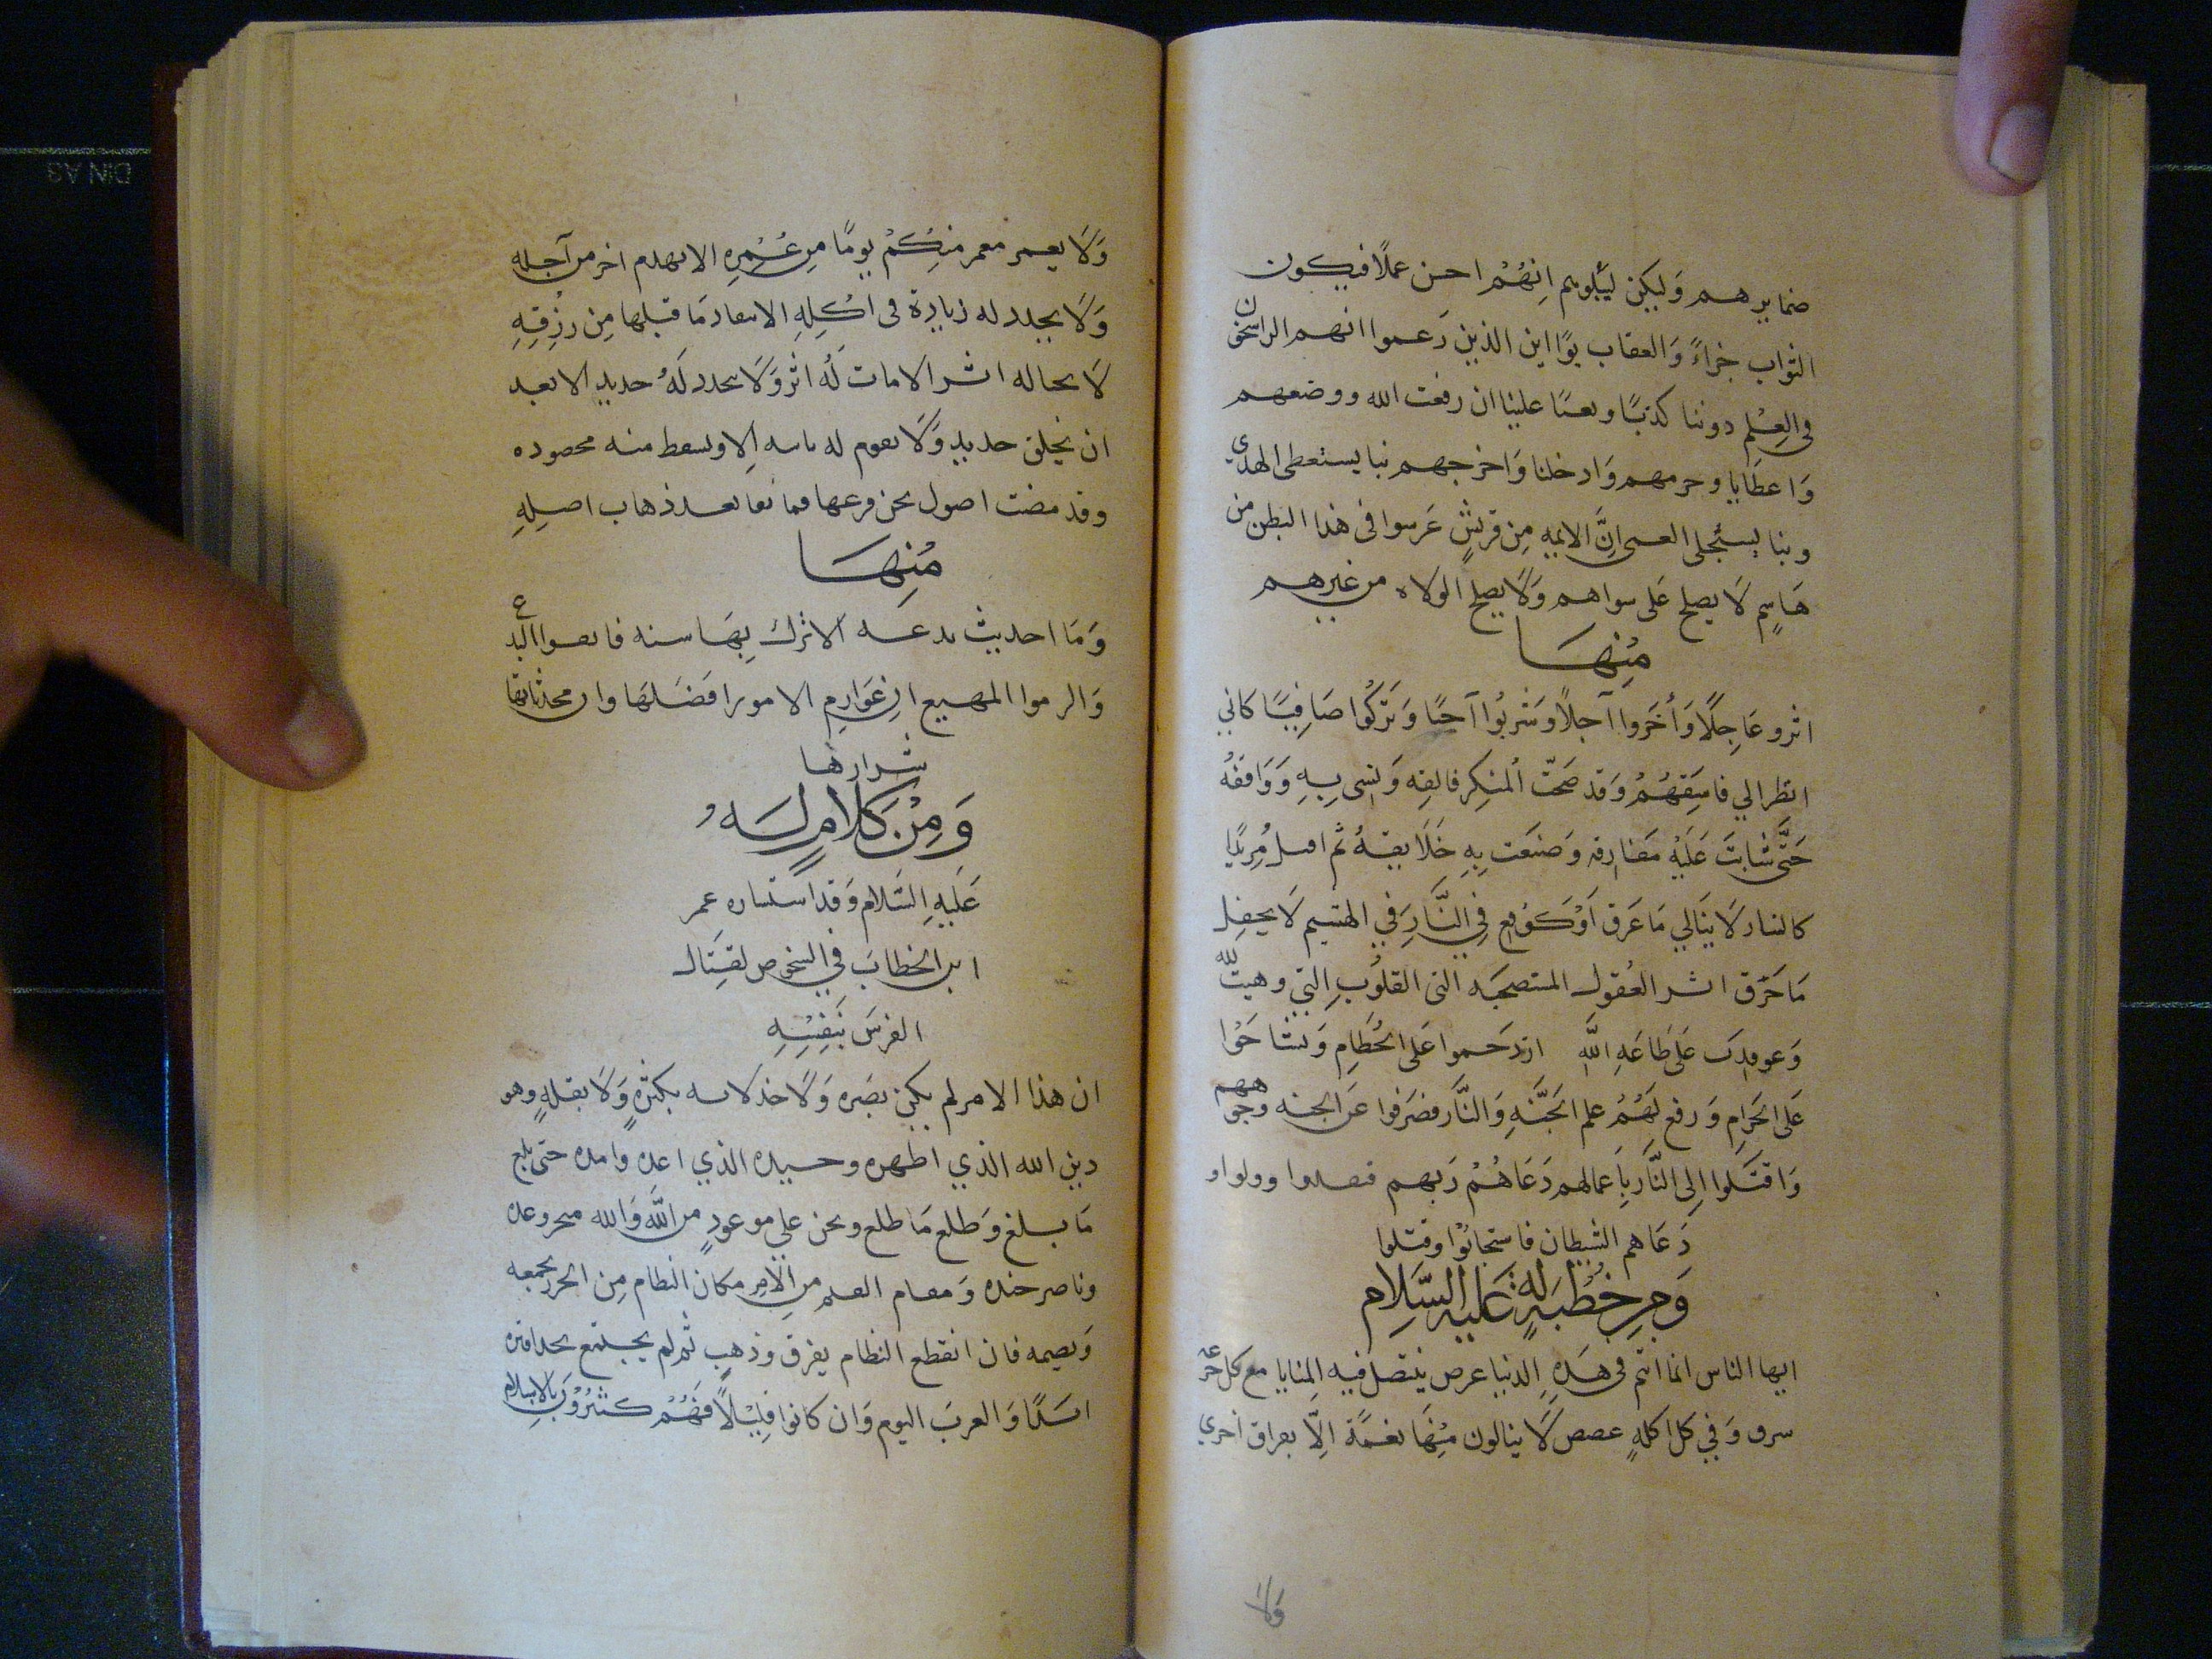 ضمايرهم وليكن ليبلوهم انهم احسن عملا فيكون
الثواب جزاء والعقاب بوا اين الذين زعموا انهم الراسخون
في العلم دوننا كذبا وبعيا علينا ان رفعت الله ووضعهم
واعطايا وحرمهم وادخلنا واخرجهم بنا يستعطى الهدي
وبنا يستجلى العمى ان الايمه من قريش عرسوا في هذا البطن من
هاسم لا يصلح على سواهم ولا يصلح الولاه من غيرهم
منها
اثرو عاجلا وأخروا آجلا وشربوا آجنا وتركوا صافيا كاني
انظر الي فاسقهم وقد صحب المنكر فالفه وبسى به ووافقه
حتى شابت عليه مفارقه وصبغت به خلايقه ثم اقبل مزبدا
كالتيار لا يبالي ما غرق او كوقع في النار في الهشيم لا يحفل
ما حرق العقول المستصحبه القلوب التي وهبت لله
وعوقدت على طاعه الله ازدحموا على الحطام وتشاحوا
على الحرام ورفع لهم علم الجنه والنار فصرفوا عن الجنه وجوههم
واقبلوا الى النار باعمالهم دعاهم ربهم فنفروا وولوا و
دعاهم الشيطان فاستجابوا وقتلوا
ومن خطبه له عليه السلام
ايها الناس انما انتم في هذه الدنيا عرص ينتصل فيه المنايا مع كل جرعه
سرق وفي كل اكله عصص لا ينالون منها نعمة الا بفراق اخري
ولا
ولا يعمر معمر منكم يوما من عمره الا بهدم اخر من آجله
ولا يجدد له زيادة في اكله الا بنفاد ما قبلها من رزقه
لا يحياله اثر الا مات له اثر ولا يتجدد له جديد الا بعد
ان يخلق جديد ولا يقوم له نابته الا ويسقط منه محصوده
وقد مضت اصول نحن فرعها فما بقا بعد ذهاب اصله
منها
وما احديث بدعه الا ترك بها سنه فاتقوا البدع
والزموا المهيع ان عوازم الامور افضلها وان محدثاتها
شرارها
ومن كلام له
عليه السلام وقد استشاره عمر
ابن الخطاب في الشخوص لقتال
الفرس بنفسه
ان هذا الامر لم يكن نصره ولا خذلانه بكثره ولا بقله وهو
دين الله الذي اظهره وجنده الذي اعده وامده حتى بلغ
ما بلغ وطلع ما طلع ونحن علي موعود من الله والله منجز وعده
وناصر جنده ومقام القيم من الامر مكان النظام من الخرز يجمعه
ويضمه فان انقطع النظام يفرق وذهب ثم لم يجتمع بحذافره
ابدا والعرب اليوم وان كانوا قليلا فهم كثيرون بالاسلام